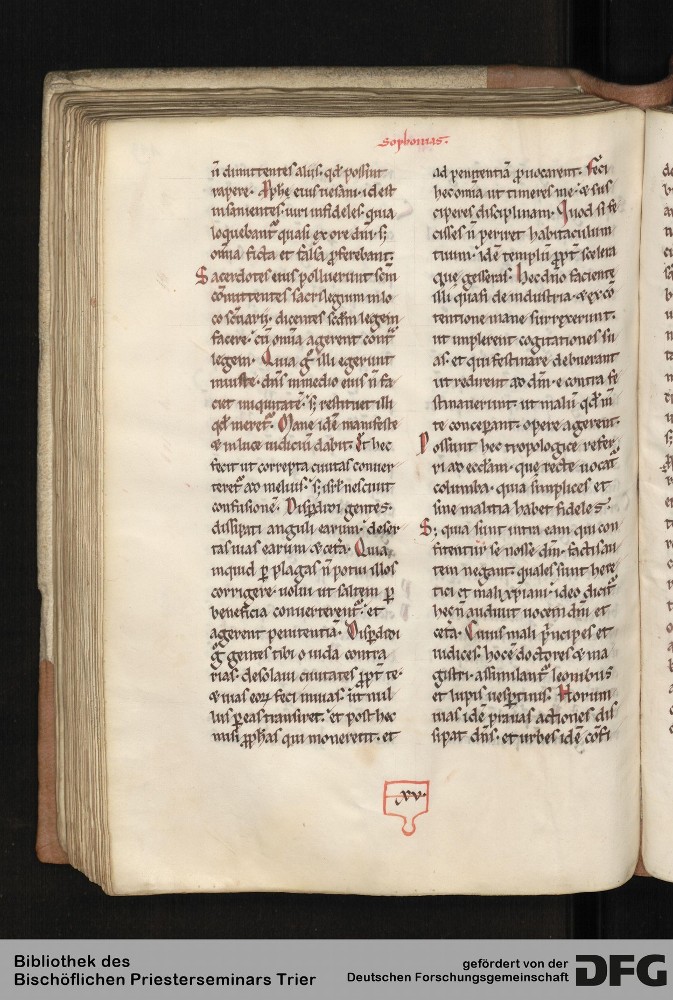 Sophonias.
n̄ dimittentes alijs. qd̕ possint
rapere. Pphe eius uesani. id est
insanientes. uiri infideles. quia
loquebant᷑ quasi ex ore dn̄i. s;
om̄ia ficta et falsa ꝓferebant.
Sacerdotes eius polluerunt sc̄m
cōmittentes sacrilegium in lo
co sc̄uarij. dicentes scd̄m legem
facere. cū om̄ia agerent cont᷑
legem. Quia g̊ illi egerunt
iniuste. dn̄s in medio eius n̄ fa
ciet iniquitatē. s; restituet illi
qd̕ meret᷑. Mane idē manifeste
& in luce iudiciū dabit. Et hec
fecit ut correpta ciuitas conuer
teret᷑ ad melius. s; isrl̄ nesciuit
confusionē. Disꝑdidi gentes.
dissipati anguli earum. deser
tas uias earum & cet̃a. Quia
inquid ꝑ plagas n̄ potui illos
corrigere. uolui ut saltem ꝑ
beneficia conuerterent᷑. et
agerent penitentiā. Disꝑdidi
g̊ gentes tibi o iuda contra
rias. desolaui ciuitates ꝓpt̃ te.
& uias eoꝝ feci inuias. ut nul
lus ꝑ eas transiret. et post hec
misi ꝓphas qui monerent. et
ad penitentiā ꝓuocarent. Feci
hec om̄ia ut timeres me. & sus
ciperes disciplinam. Quod si fe
cisses n̄ periret habitaculum
tuum. idē templū ꝓpt̃ scelera
que gesseras. Hec dn̄o faciente
illi quasi de industria. & ex cō
tentione mane surrexerunt.
ut implerent cogitationes su
as. et qui festinare debuerant
ut redirent ad dn̄m. e contra fe
stinauerunt. ut malū qd̕ m̄
te conceperant. opere agerent.
Possunt hec tropologice refer
ri ad ecclam. que recte uocat᷑
columba. quia simplices et
sine malitia habet fideles.
S; quia sunt intra eam qui con
fitentur se nosse dn̄m. factis au
tem negant. quales sunt here
tici et mali xpiani. ideo dicit᷑
hec n̄ audiuit uocem dn̄i et
cet̃a. Cuius mali pͥncipes et
iudices. hoc ē doctores & ma
gistri. assimilant᷑ leonibus
et lupis uesꝑtinis. Horum
uias idē prauas actiones dis
sipat dn̄s. et urbes idē cōfi
xv.
Bibliothek des
Bischöflichen Priesterseminars Trier
gefördert von der
Deutschen Forschungsgemeinschaft
DFG